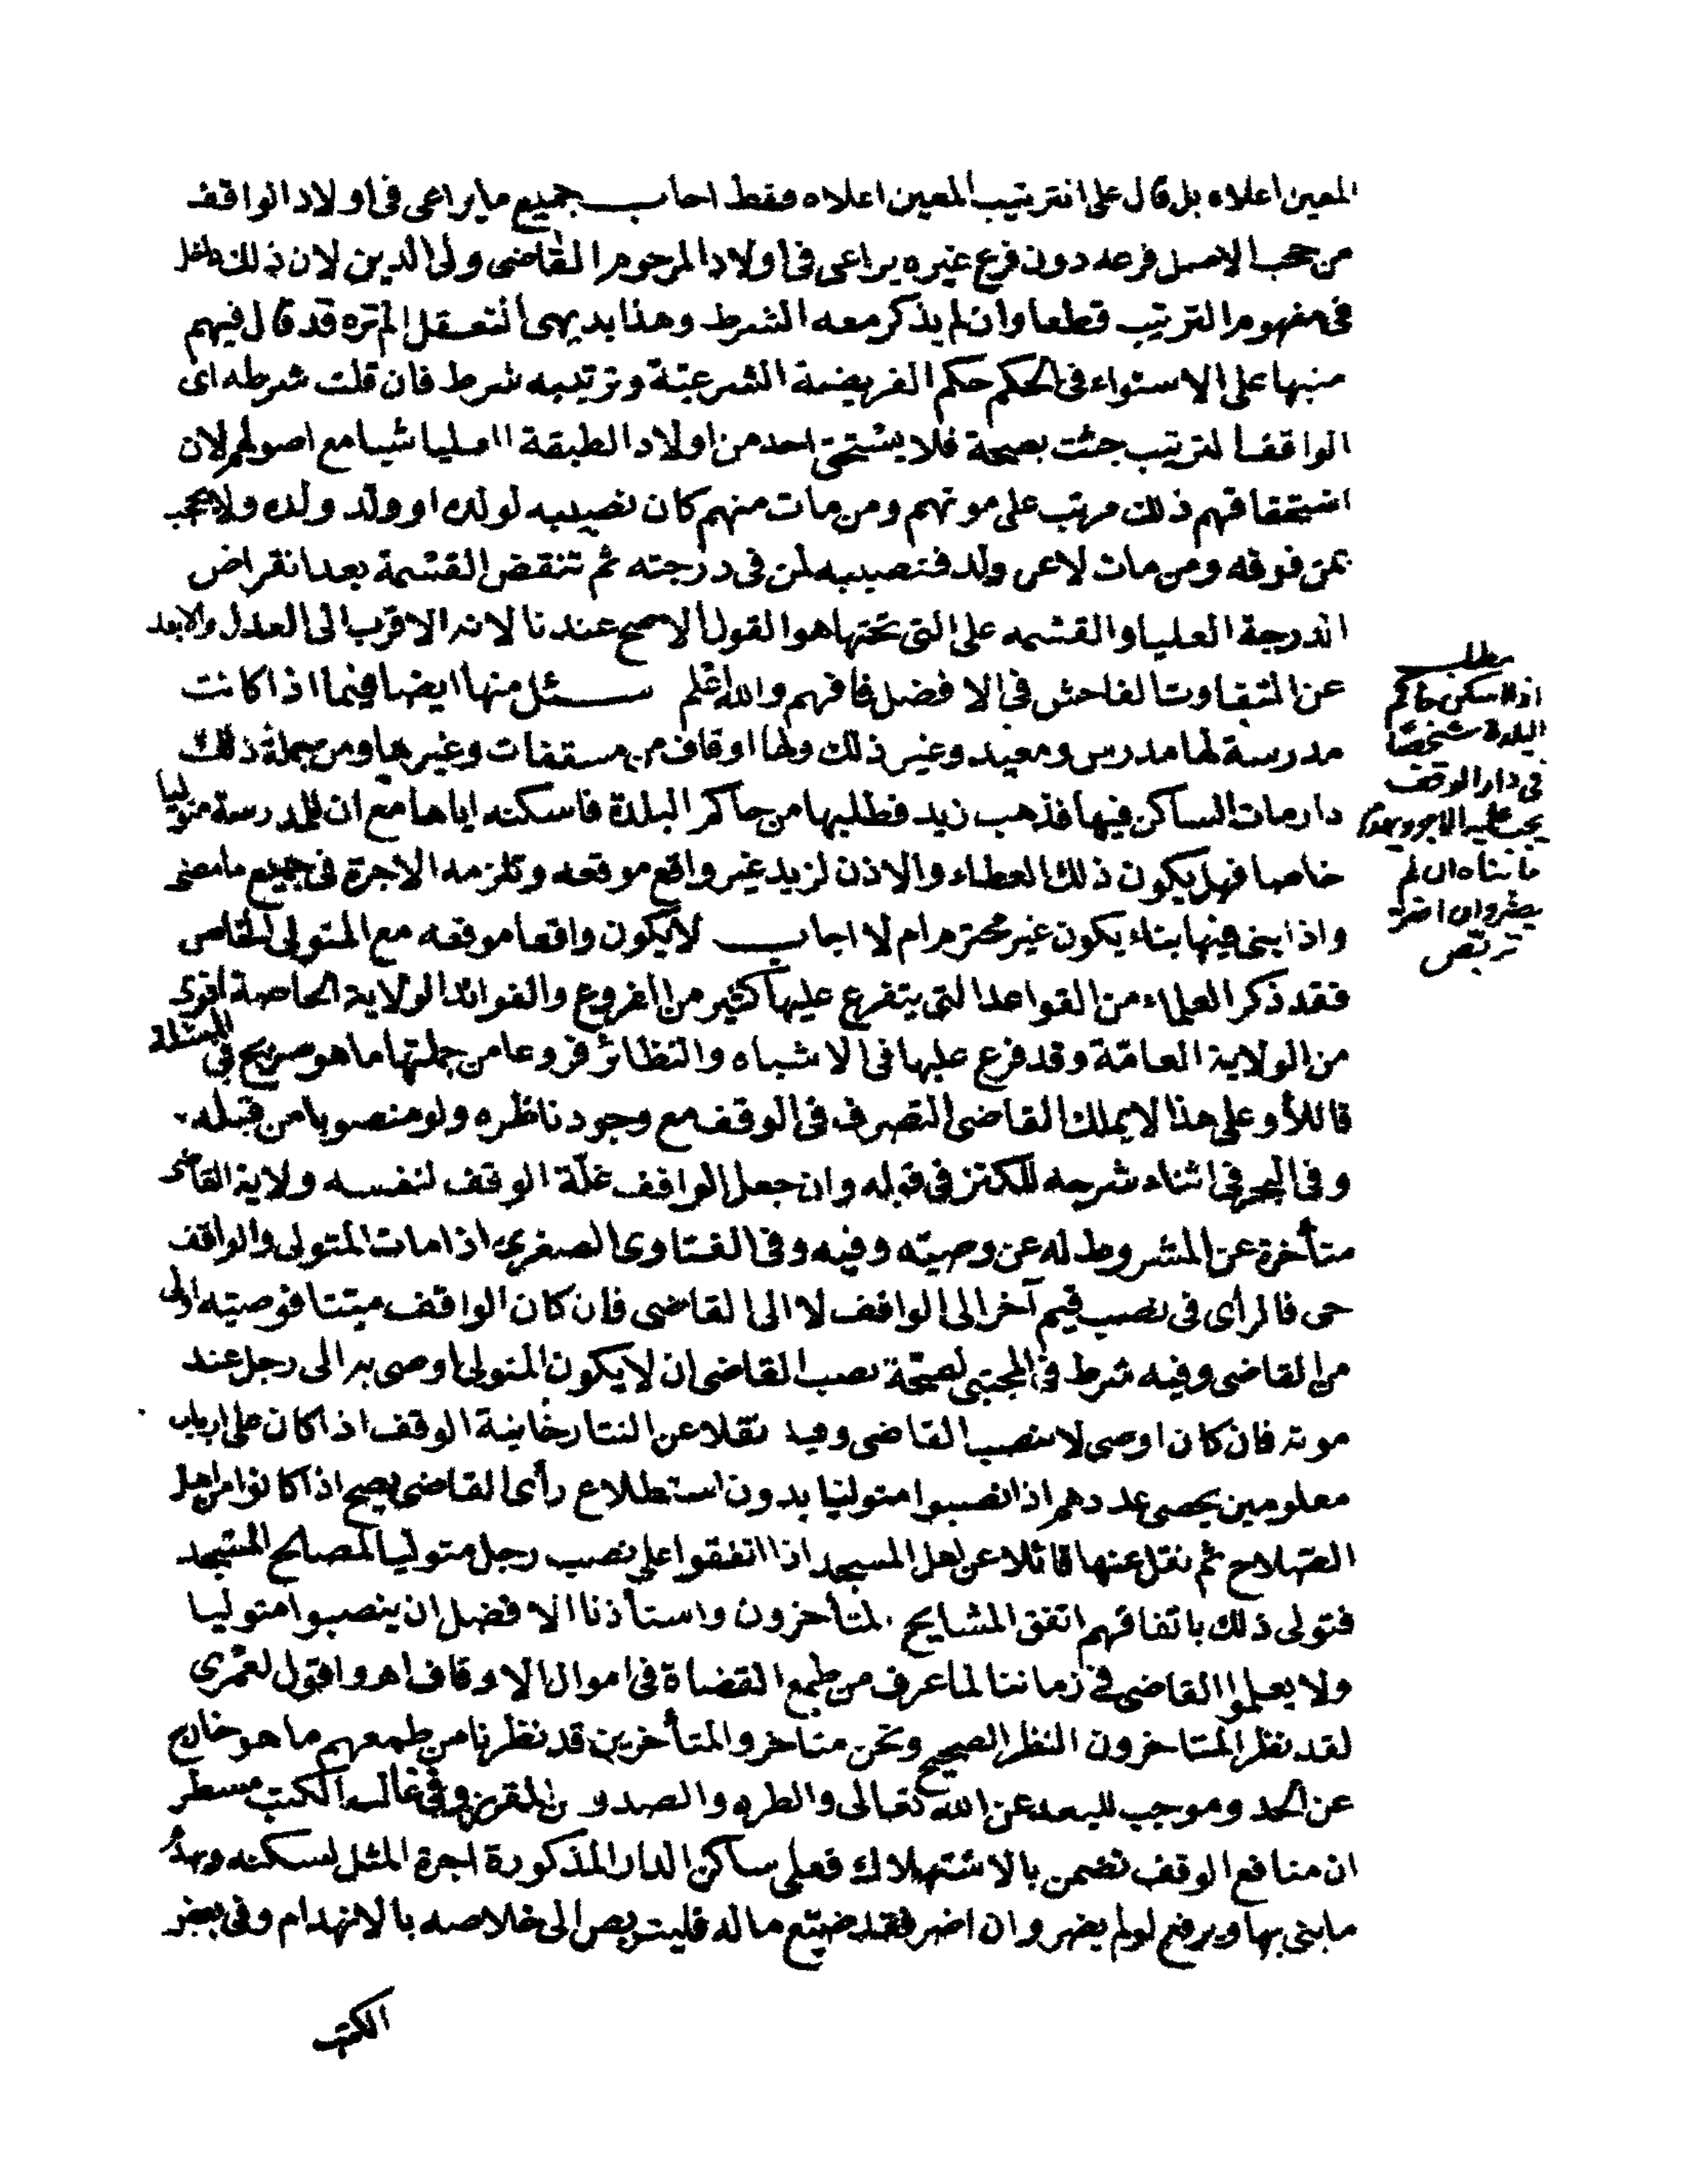 المعين اعلاه بل قال على الترتيب المعين اعلاه فقط اجاب جميع ما يراعى فى اولاد الواقف
من حجب الاصل فرعه دون فرع غيره يراعى فى اولاد المرحوم القاضى ولى الدين لان ذلك داخل
فى مفهوم الترتيب قطعا وان لم يذكر معه الشرط وهذا بديهى التعقل الم تره قد قال فيهم
منبها على الاستواء فى الحكم حكم الفريضة الشرعية وترتيبه شرط فان قلت شرطه اى
الواقف الترتيب جئت بصحة فلا يستحق احد من اولاد الطبقة العليا شيا مع اصولهم لان
استحقاقهم ذلك مرتب على موتهم ومن مات منهم كان نصيبه لولده او ولد ولده ولا يحجب
بمن فوقه ومن مات لا عن ولد فنصيبه لمن فى درجته ثم تنقض القسمة بعد انقراض
الدرجة العليا والقسمه على التى تحتها هو القول الاصح عندنا لانه الاقرب الى العدل والابعد
عن التفاوت الفاحش فى الافضل فافهم والله اعلم سئل منها ايضا فيما اذا كانت
مدرسة لها مدرس ومعيد وغير ذلك ولها اوقاف من مسقفات وغيرها ومن جملة ذلك
دار مات الساكن فيها فذهب زيد فطلبها من حاكم البلدة فاسكنه اياها مع ان للمدرسة متوليا
خاصا فهل يكون ذلك العطاء والاذن لزيد غير واقع موقعه وتلزمه الاجرة فى جميع ما مضى
واذا بنى فيها بناء يكون غير محترم ام لا اجاب لا يكون واقعا موقعه مع المتولى الخاص
فقد ذكر العلماء من القواعد التى يتفرع عليها كثير من الفروع والفوائد الولاية الخاصة اقوى
من الولاية العامّة وقد فرع عليها فى الاشباه والنظائر فروعا من جملتها ما هو صريح فى المسئلة
قائلا وعلى هذا لا يملك القاضى التصرف فى الوقف مع وجود ناظره ولو منصوبا من قبله
وفى البحر فى اثناء شرحه للكنز فى قوله وان جعل الواقف غلّة الوقف لنفسه ولاية القاضى
متأخرة عن المشروط له عن وصيته وفيه وفى الفتاوى الصغرى اذا مات المتولى والواقف
حى فالرأى فى نصب قيم آخر الى الواقف لا الى القاضى فان كان الواقف ميتا فوصيته اولى
من القاضى وفيه شرط فى المجتبى لصحّة نصب القاضى ان لا يكون المتولى اوصى به الى رجل عند
موته فان كان اوصى لا ينصب القاضى وفيه نقلا عن التتارخانية الوقف اذا كان على ارباب
معلومين يحصى عددهم اذا نصبوا متوليا بدون استطلاع رأى القاضى يصح اذا كانوا من اهل
الصّلاح ثم نقل عنها قائلا عن اهل المسجد اذا اتفقوا على نصب رجل متوليا لمصالح المسجد
فتولى ذلك باتفاقهم اتفق المشايخ المتأخرون واستأذنا الافضل ان ينصبوا متوليا
ولا يعلموا القاضى فى زماننا لما عرف من طمع القضاة فى اموال الاوقاف اهـ واقول لعمرى
لقد نظر المتاخرون النظر الصحيح ونحن متاخر والمتأخرين قد نظرنا من طمعهم ما هو خارج
عن الحد وموجب للبعد عن الله تعالى والطرد والصد ومن المقرر وفى غالب الكتب مسطر
ان منافع الوقف تضمن بالاستهلاك فعلى ساكن الدار المذكورة اجرة المثل لسكنه ويهدم
ما بنى بها ويرفع لو لم يضر وان اضر فقد ضيّع ماله فليتربص الى خلاصه بالانهدام وفى بعض
الكتب
مطلب
اذا اسكن حاكم
البلدة شخصا
فى دار الوقف
يجب عليه الاجر ويهدم
ما بناه ان لم
يضر وان اضر
تربّص